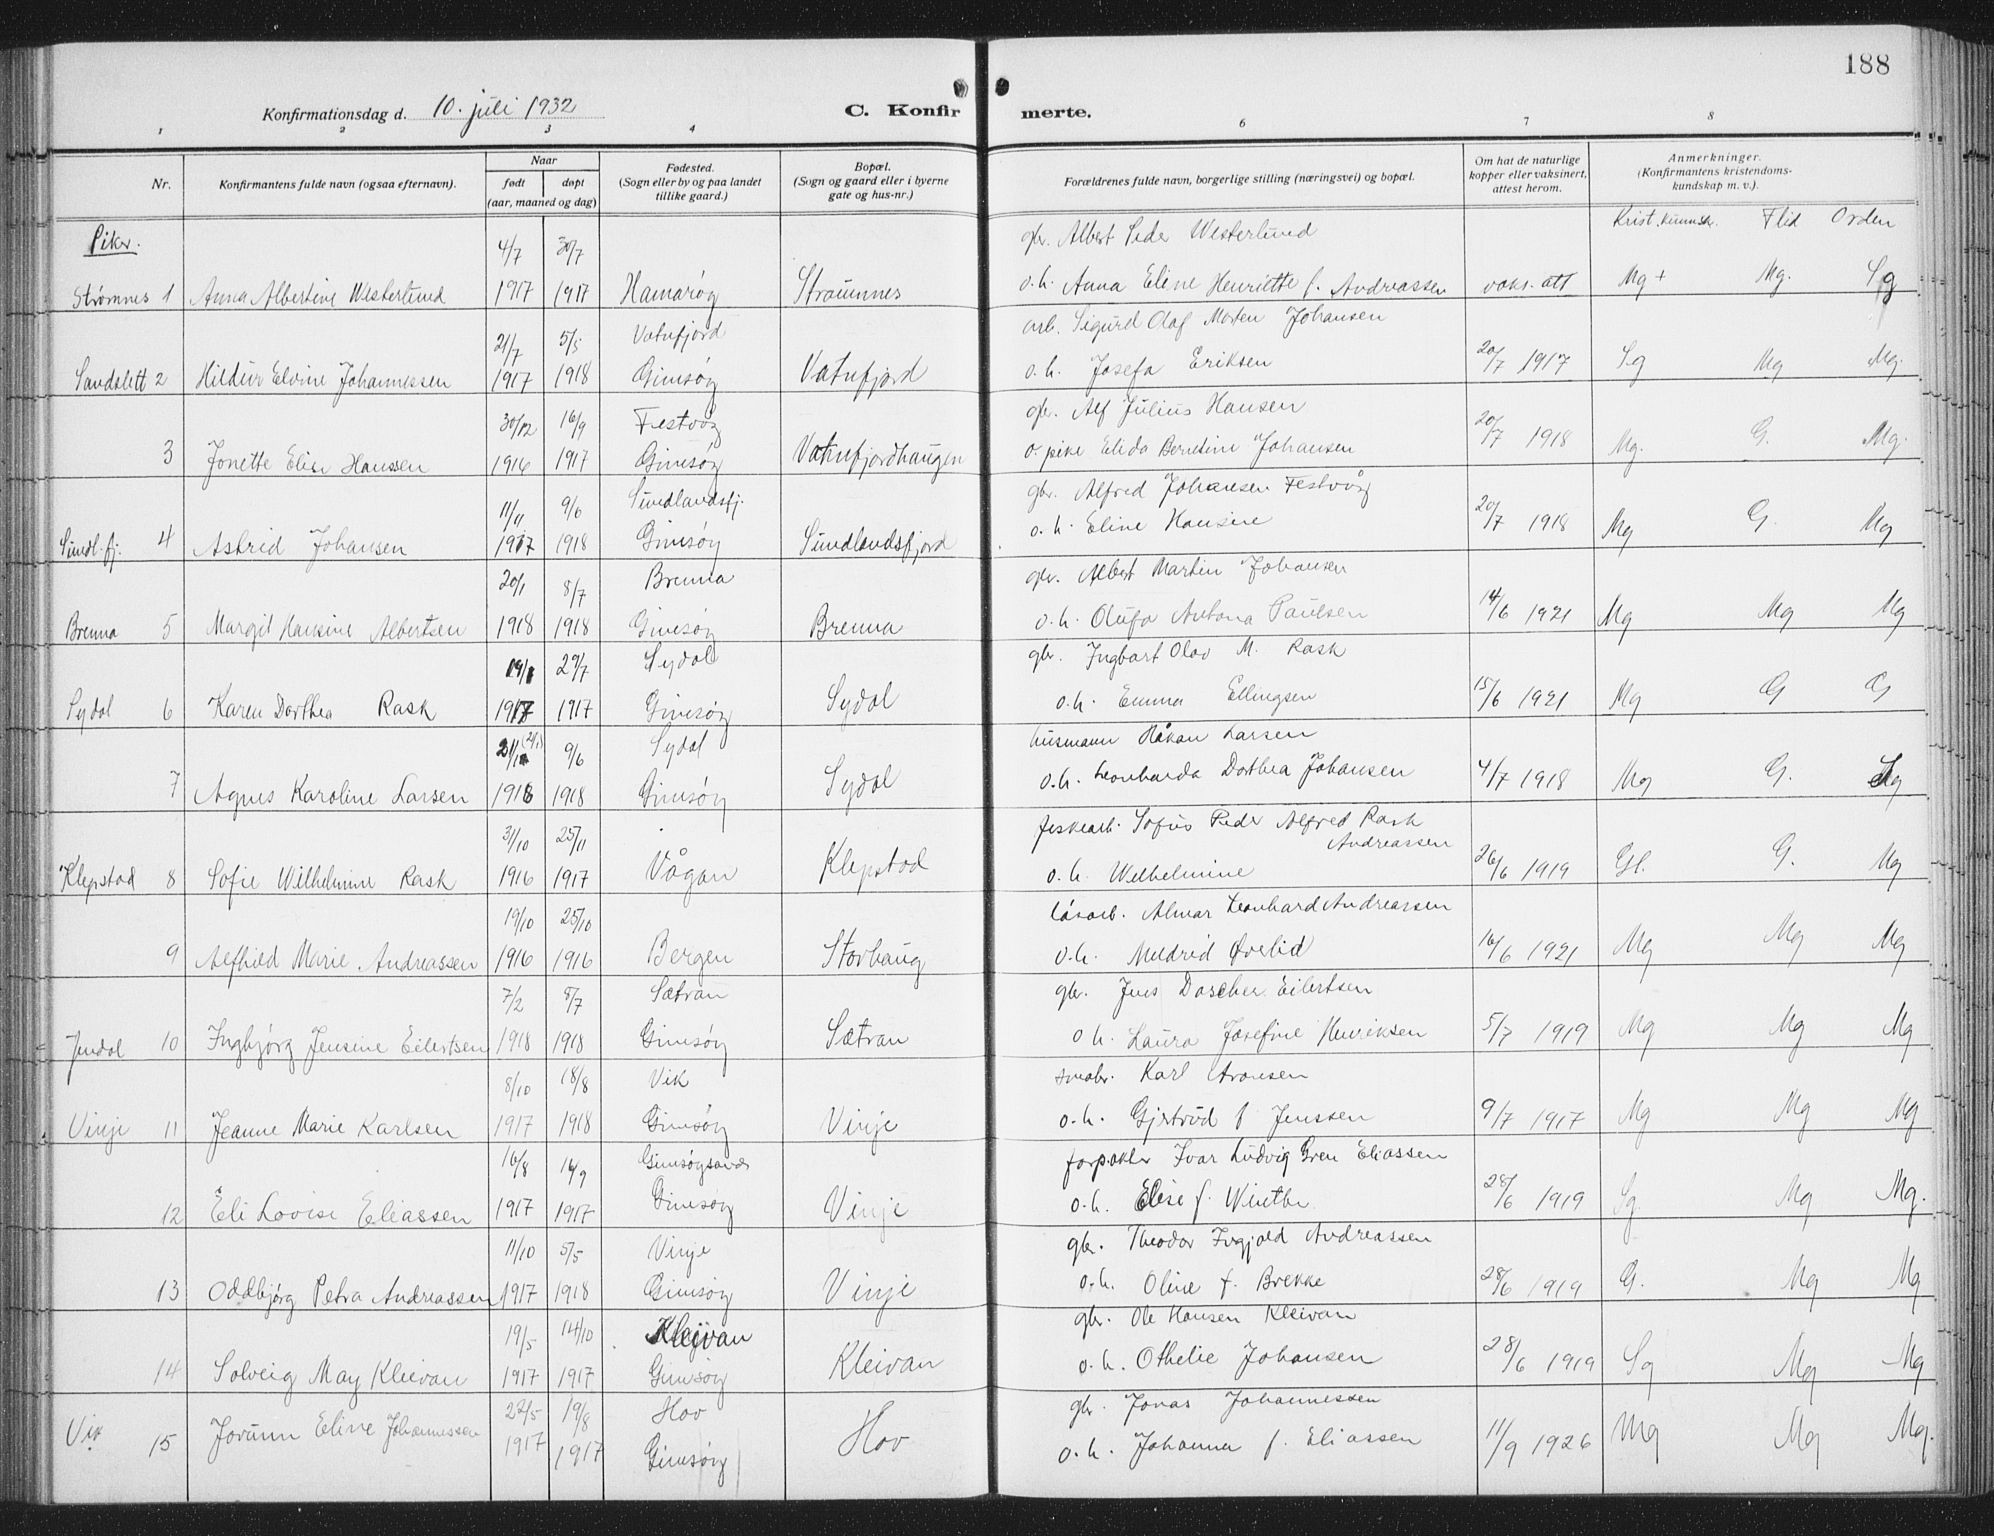 188
Konfirmationsdag d. 10. juli 1932
C. Konfirmerte.
1 2 3 4 6 7 8
Nr.
Konfirmantens fulde navn (ogsaa efternavn).
Naar
født døpt
(aar, maaned og dag)
Fødested.
(Sogn eller by og paa landet
tillike gaard.)
Bopæl.
(Sogn og gaard eller i byerne
gate og hus-nr.)
Forældrenes fulde navn, borgerlige stilling (næringsvei) og bopæl.
Om hat de naturlige
kopper eller vaksinert,
attest herom.
Anmerkninger.
(Konfirmantens kristendoms-
kundskap m. v.).
Piker.
4/7 30/7 gbr. Albert Peder Westerlund Krist.kunnsk. Flid Orden
Strømnes 1 Anna Albertine Westerlund 1917 1917 Hamarøy Straumnes o.h. Anna Eline Henriette f. Andreassen vaks. att Mg+ Mg. Sg
21/7 5/5 Vatnfjord arb. Sigurd Olaf Morten Johansen
Sandslett 2 Hildur Elvine Johannessen 1917 1918 Gimsøy Vatnfjord o.h. Josefa Eriksen 20/7 1917 Sg Mg Mg.
30/12 16/9 Festvåg gbr. Alf Julius Hansen
3 Jonette Elise Hanssen 1916 1917 Gimsøy Vatnfjordhaugen o. pike Elida Berntine Johansen 20/7 1918 Mg. G. Mg.
11/11 9/6 Sundlandsfj. gbr. Alfred Johansen Festvåg
Sundl.fj. 4 Astrid Johansen 1917 1918 Gimsøy Sundlandsfjord o.h. Eline Hansine 20/7 1918 Mg G. Mg
20/1 8/7 Brenna gbr. Albert Martin Johansen
Brenna 5 Margit Hansine Albertsen 1918 1918 Gimsøy Brenna o.h. Olufa Antona Paulsen 14/6 1921 Mg Mg Mg
29/7 Sydal gbr. Ingbart Olav M. Rask
Sydal 6 Karen Dorthea Rask 1917 1917 Gimsøy Sydal o.h. Emma Ellingsen 15/6 1921 Mg G G
9/6 Sydal husmann Håkon Larsen
7 Agnes Karoline Larsen 1918 1918 Gimsøy Sydal o.h. Leonharda Dorthea Johansen 4/7 1918 Mg G. Sg
31/10 25/11 fiskearb. Sofus Peder Alfred Rask
Andreassen
Klepstad 8 Sofie Wilhelmine Rask 1916 1917 Vågan Klepstad o.h. Wilhelmine 26/6 1919 Gl. G. Mg
19/10 25/10 løsarb. Almar Leonhard Andreassen
9 Alfhild Marie Andreassen 1916 1916 Bergen Storhaug o.h. Meldrid Øverlid 16/6 1921 Mg Mg Mg
7/2 8/7 Sætran gbr. Jens Dascher Eilertsen
Jendal 10 Ingbjørg Jensine Eilertsen 1918 1918 Gimsøy Sætran o h. Laura Josefine Henriksen 5/7 1919 Mg Mg Mg
8/10 18/8 Vik småbr. Karl Aronsen
Vinje 11 Jeanne Marie Karlsen 1917 1918 Gimsøy Vinje o.h. Gjertrud f Jenssen 9/7 1917 Mg Mg Mg
16/8 16/9 Gimsøysand forpakter Ivar Ludvig Gren Eliassen
12 Eli Lovise Eliassen 1917 1917 Gimsøy Vinje o.h. Elise f. Winther 28/6 1919 Sg. Mg Mg.
11/10 5/5 Vinje gbr. Theodor Ingjald Andreassen
13 Oddbjørg Petra Andreassen 1917 1918 Gimsøy Vinje o.h. Oline f. Brekke 28/6 1919 G. Mg Mg
19/5 14/10 Kleivan gbr. Ole Hansen Kleivan
14 Solveig May Kleivan 1917 1917 Gimsøy Kleivan o.h. Othelie Johansen 28/6 1919 Sg Mg Mg
22/5 19/8 Hov gbr. Jonas Johannessen
Vik 15 Jorunn Eline Johannessen 1917 1917 Gimsøy Hov o.h. Johanna f. Eliassen 11/9 1926 Mg Mg Mg.